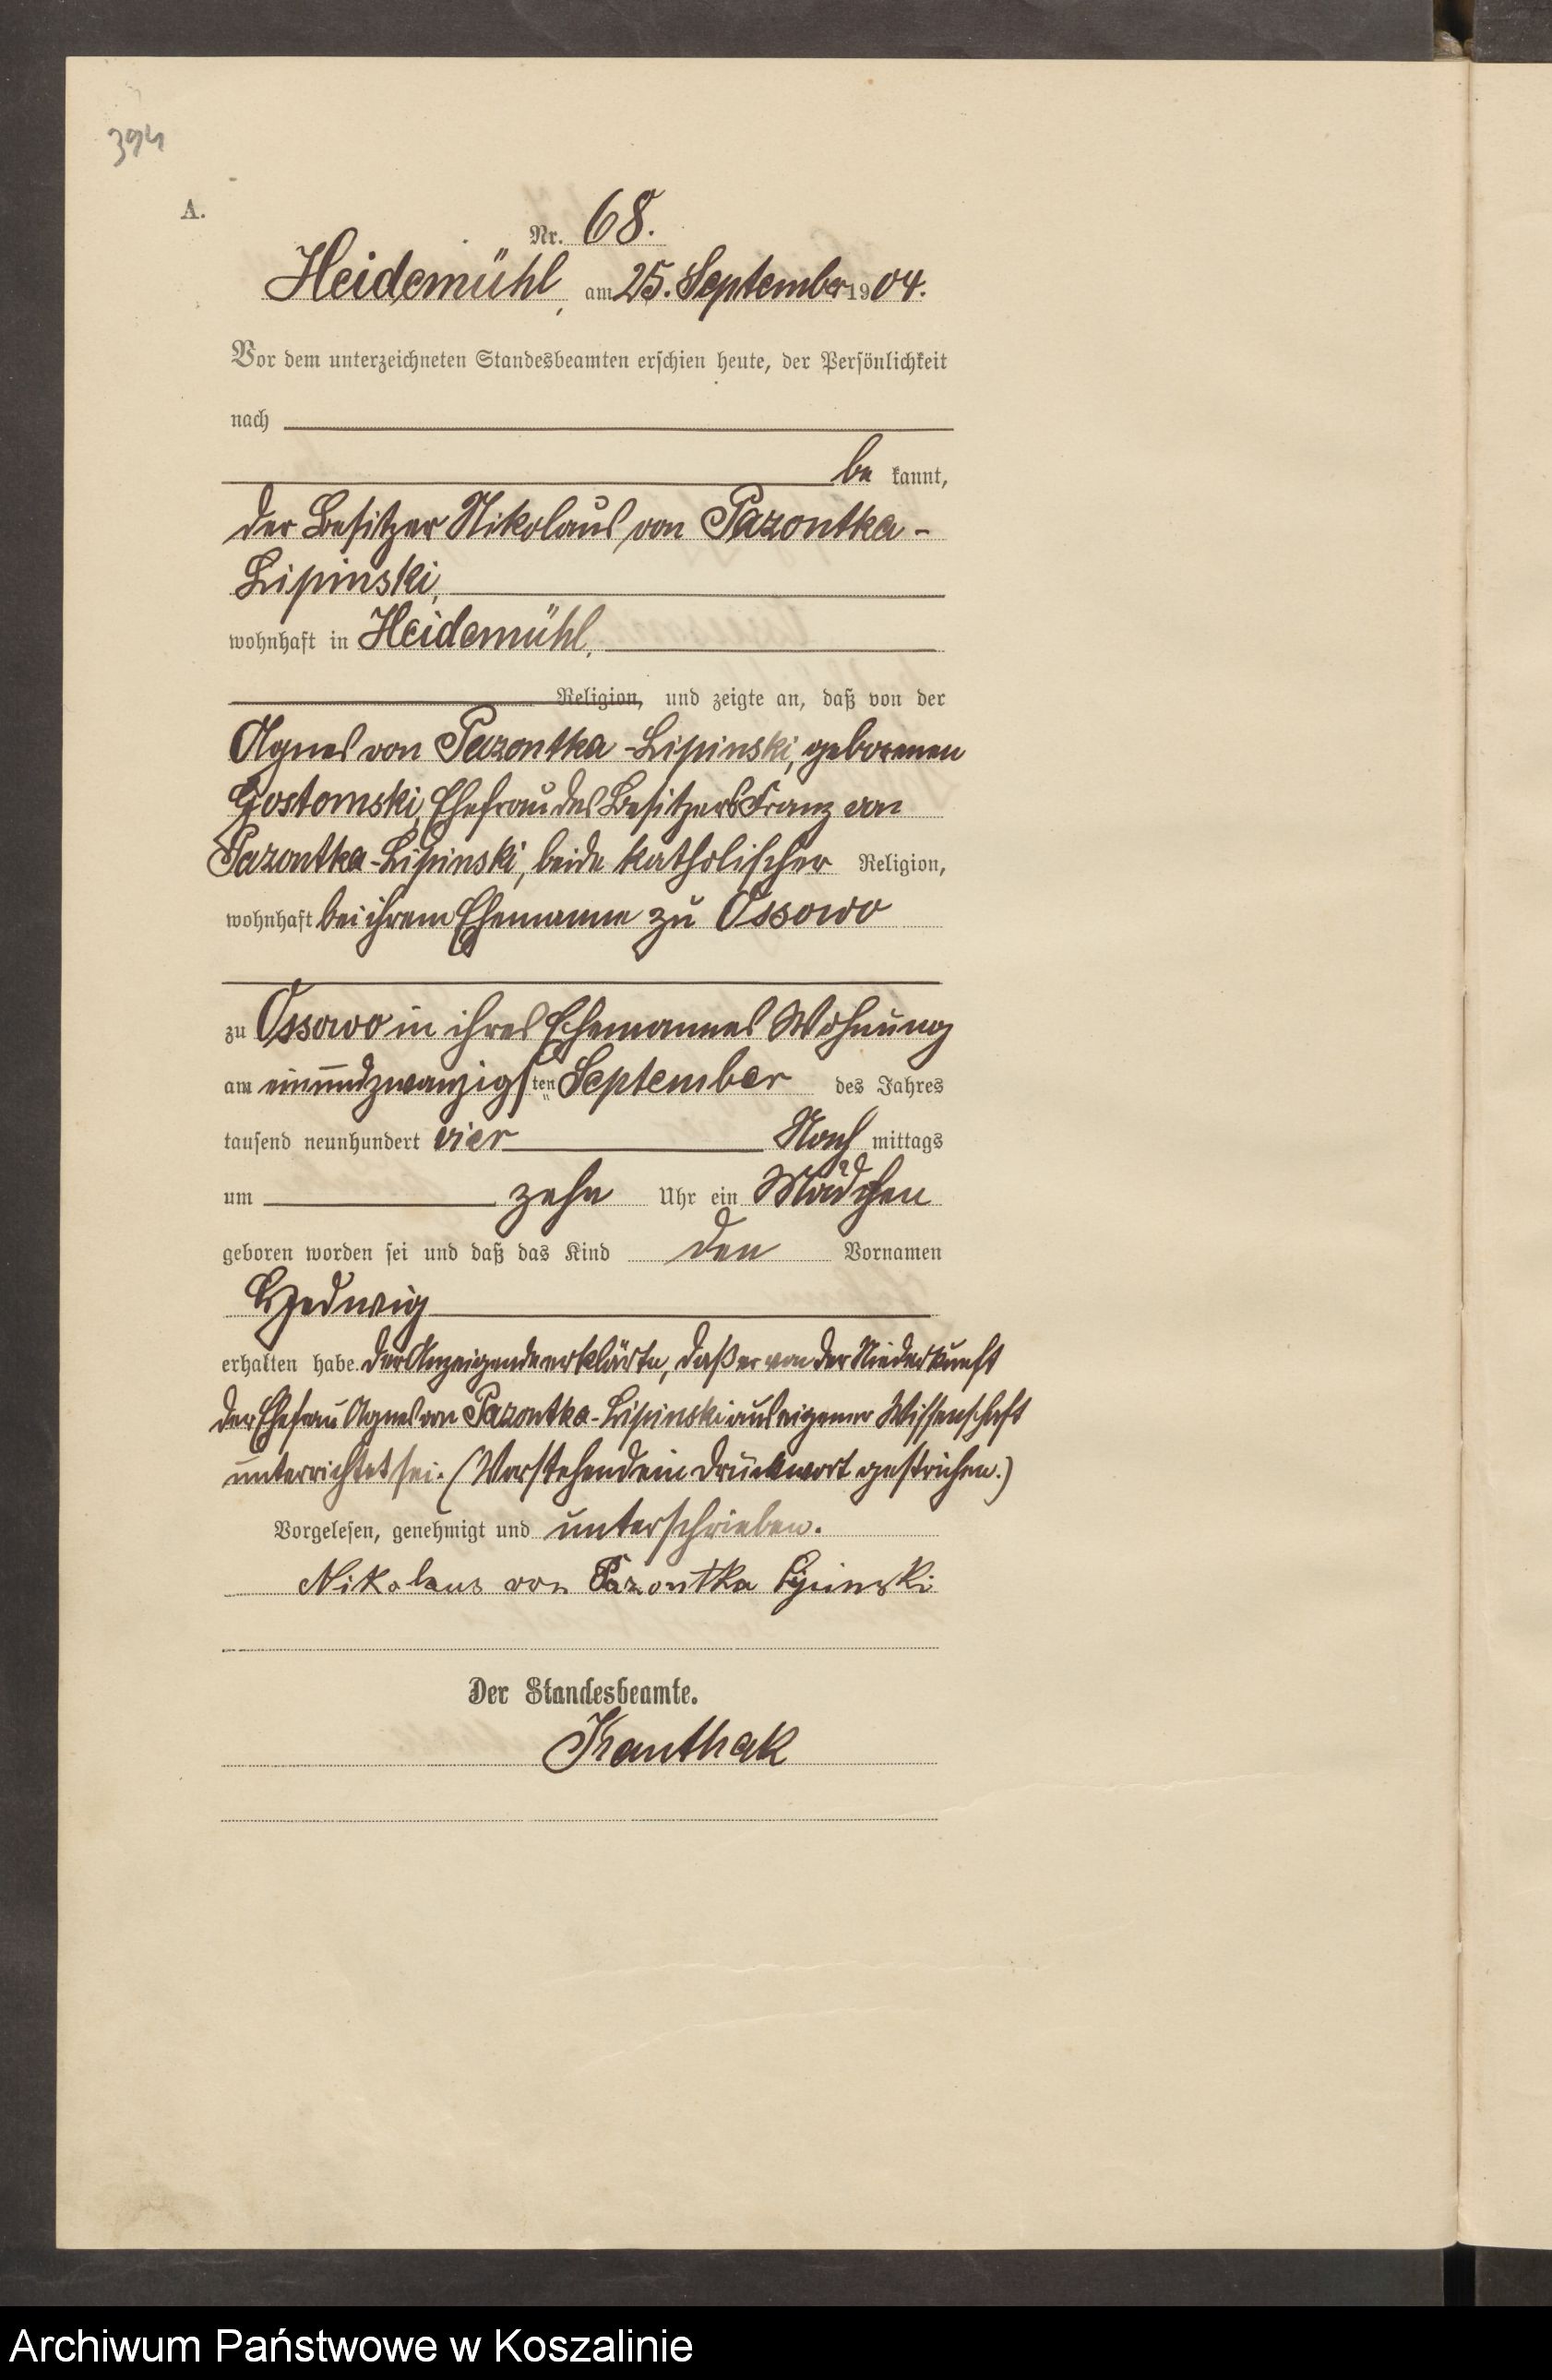 394
A.
Nr. 68.
Heidemühl, am 25. September 1904.
Vor dem unterzeichneten Standesbeamten erschien heute, der Persönlichkeit
nach
be kannt,
der Besitzer Nikolaus von Pazontka-
Lipinski,
wohnhaft in Heidemühl,
Religion, und zeigte an, daß von der
Agnes von Pazontka-Lipinski, geborenen
Gostomski, Ehefrau des Besitzers Franz von
Pazontka-Lipinski, beide katholischer Religion,
wohnhaft bei ihrem Ehemanne zu Ossowo
zu Ossowo in ihres Ehemannes Wohnung
am einundzwanzigsten September des Jahres
tausend neunhundert vier Nach mittags
um zehn Uhr ein Mädchen
geboren worden sei und daß das Kind den Vornamen
Hedwig
erhalten habe. Der Anzeigende erklärte, daß er von der Niederkunft
der Ehefrau Agnes von Pazontka-Lipinski aus eigener Wissenschaft
unterrichtet sei. (Vorstehend ein Druckwort gestrichen.)
Vorgelesen, genehmigt und unterschrieben.
Nikolaus von Pazontka Lipinski
Der Standesbeamte.
Kanthak
Archiwum Państwowe w Koszalinie